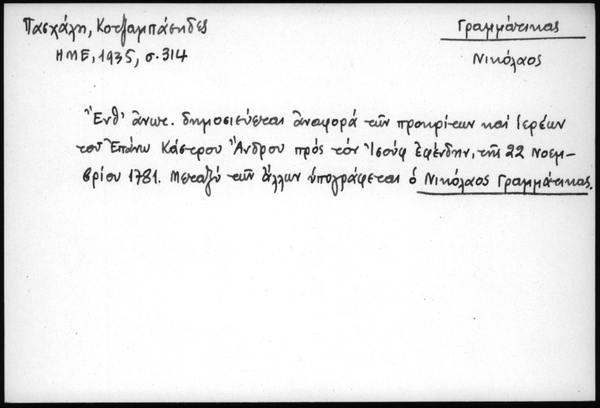 Πασχάλη, Κοτζαμπάσηδες
ΗΜΕ, 1935, σ. 314
Γραμμάτικας
Νικόλαος
Ἔνθ' ἀνωτ. δημοσιεύεται ἀναφορά τῶν προκρίτων καί ἱερέων
τοῦ Ἐπάνω Κάστρου Ἄνδρου πρός τόν Ἰσούφ ἐφένδην, τῆς 22 Νοεμ-
βρίου 1781. Μεταξύ τῶν ἄλλων ὑπογράφεται ὁ Νικόλαος Γραμμάτικας.